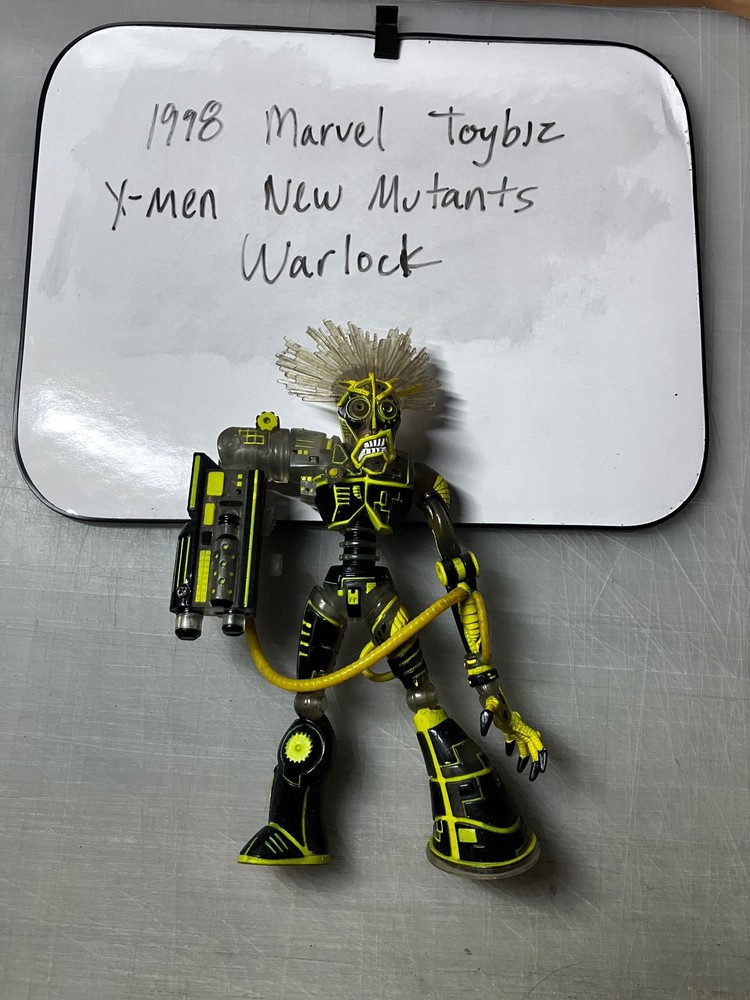 1998 Marvel Toybiz
X-Men New Mutants
Warlock